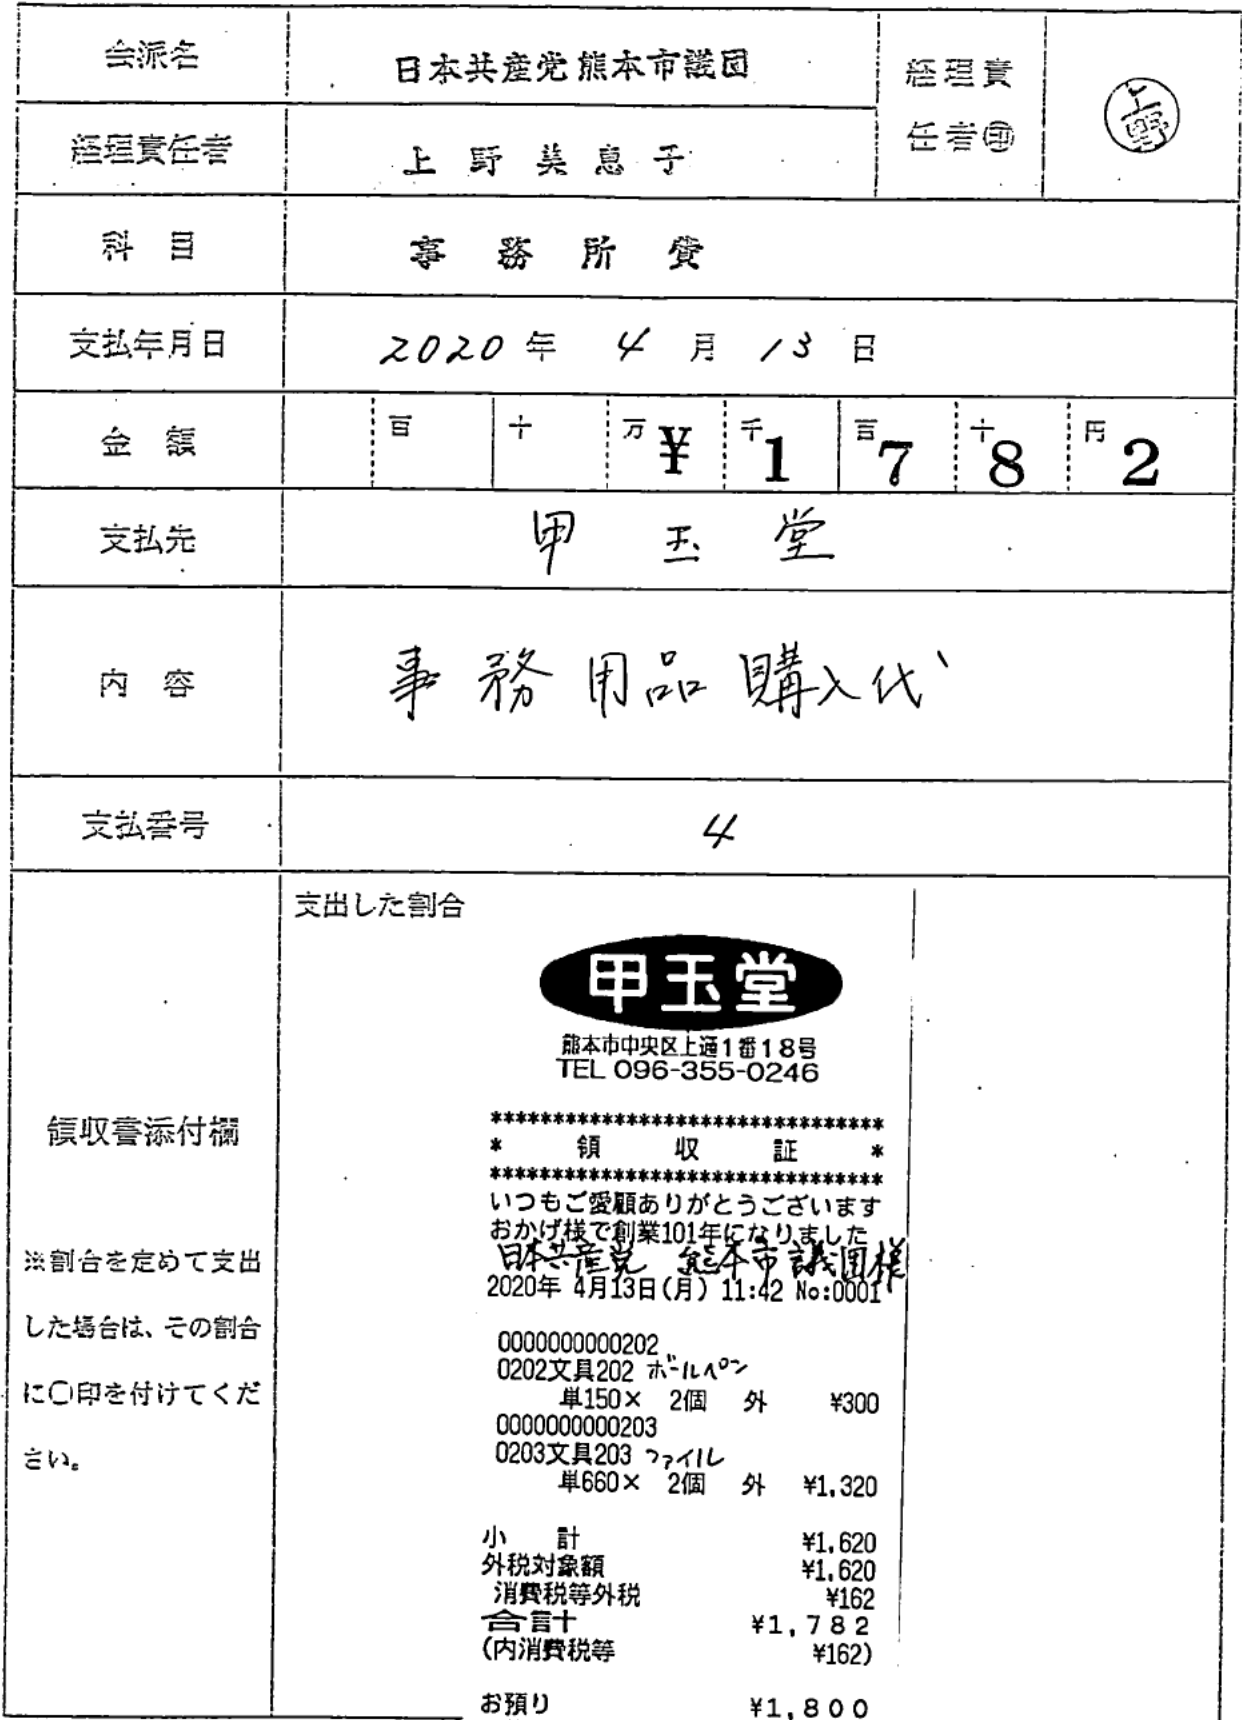 会派名 日本共産党熊本市議団 経理責任者㊞ 上野
経理責任者 上野美恵子
科目 事務所費
支払年月日 2020年 4月 13日
金額 百 十 万¥ 千1 百7 十8 円2
支払先 甲玉堂
内容 事務用品購入代
支払番号 4
支出した割合
甲玉堂
熊本市中央区上通1番18号
TEL 096-355-0246
********************************
* 領 収 証 *
********************************
いつもご愛顧ありがとうございます
おかげ様で創業101年になりました
日本共産党 熊本市議団様
2020年 4月13日(月) 11:42 No:0001
0000000000202
0202文具202 ボールペン
単150× 2個 外 ¥300
0000000000203
0203文具203 ファイル
単660× 2個 外 ¥1,320
小 計 ¥1,620
外税対象額 ¥1,620
消費税等外税 ¥162
合計 ¥1,782
(内消費税等 ¥162)
お預り ¥1,800
領収書添付欄
※割合を定めて支出
した場合は、その割合
に○印を付けてくだ
さい。